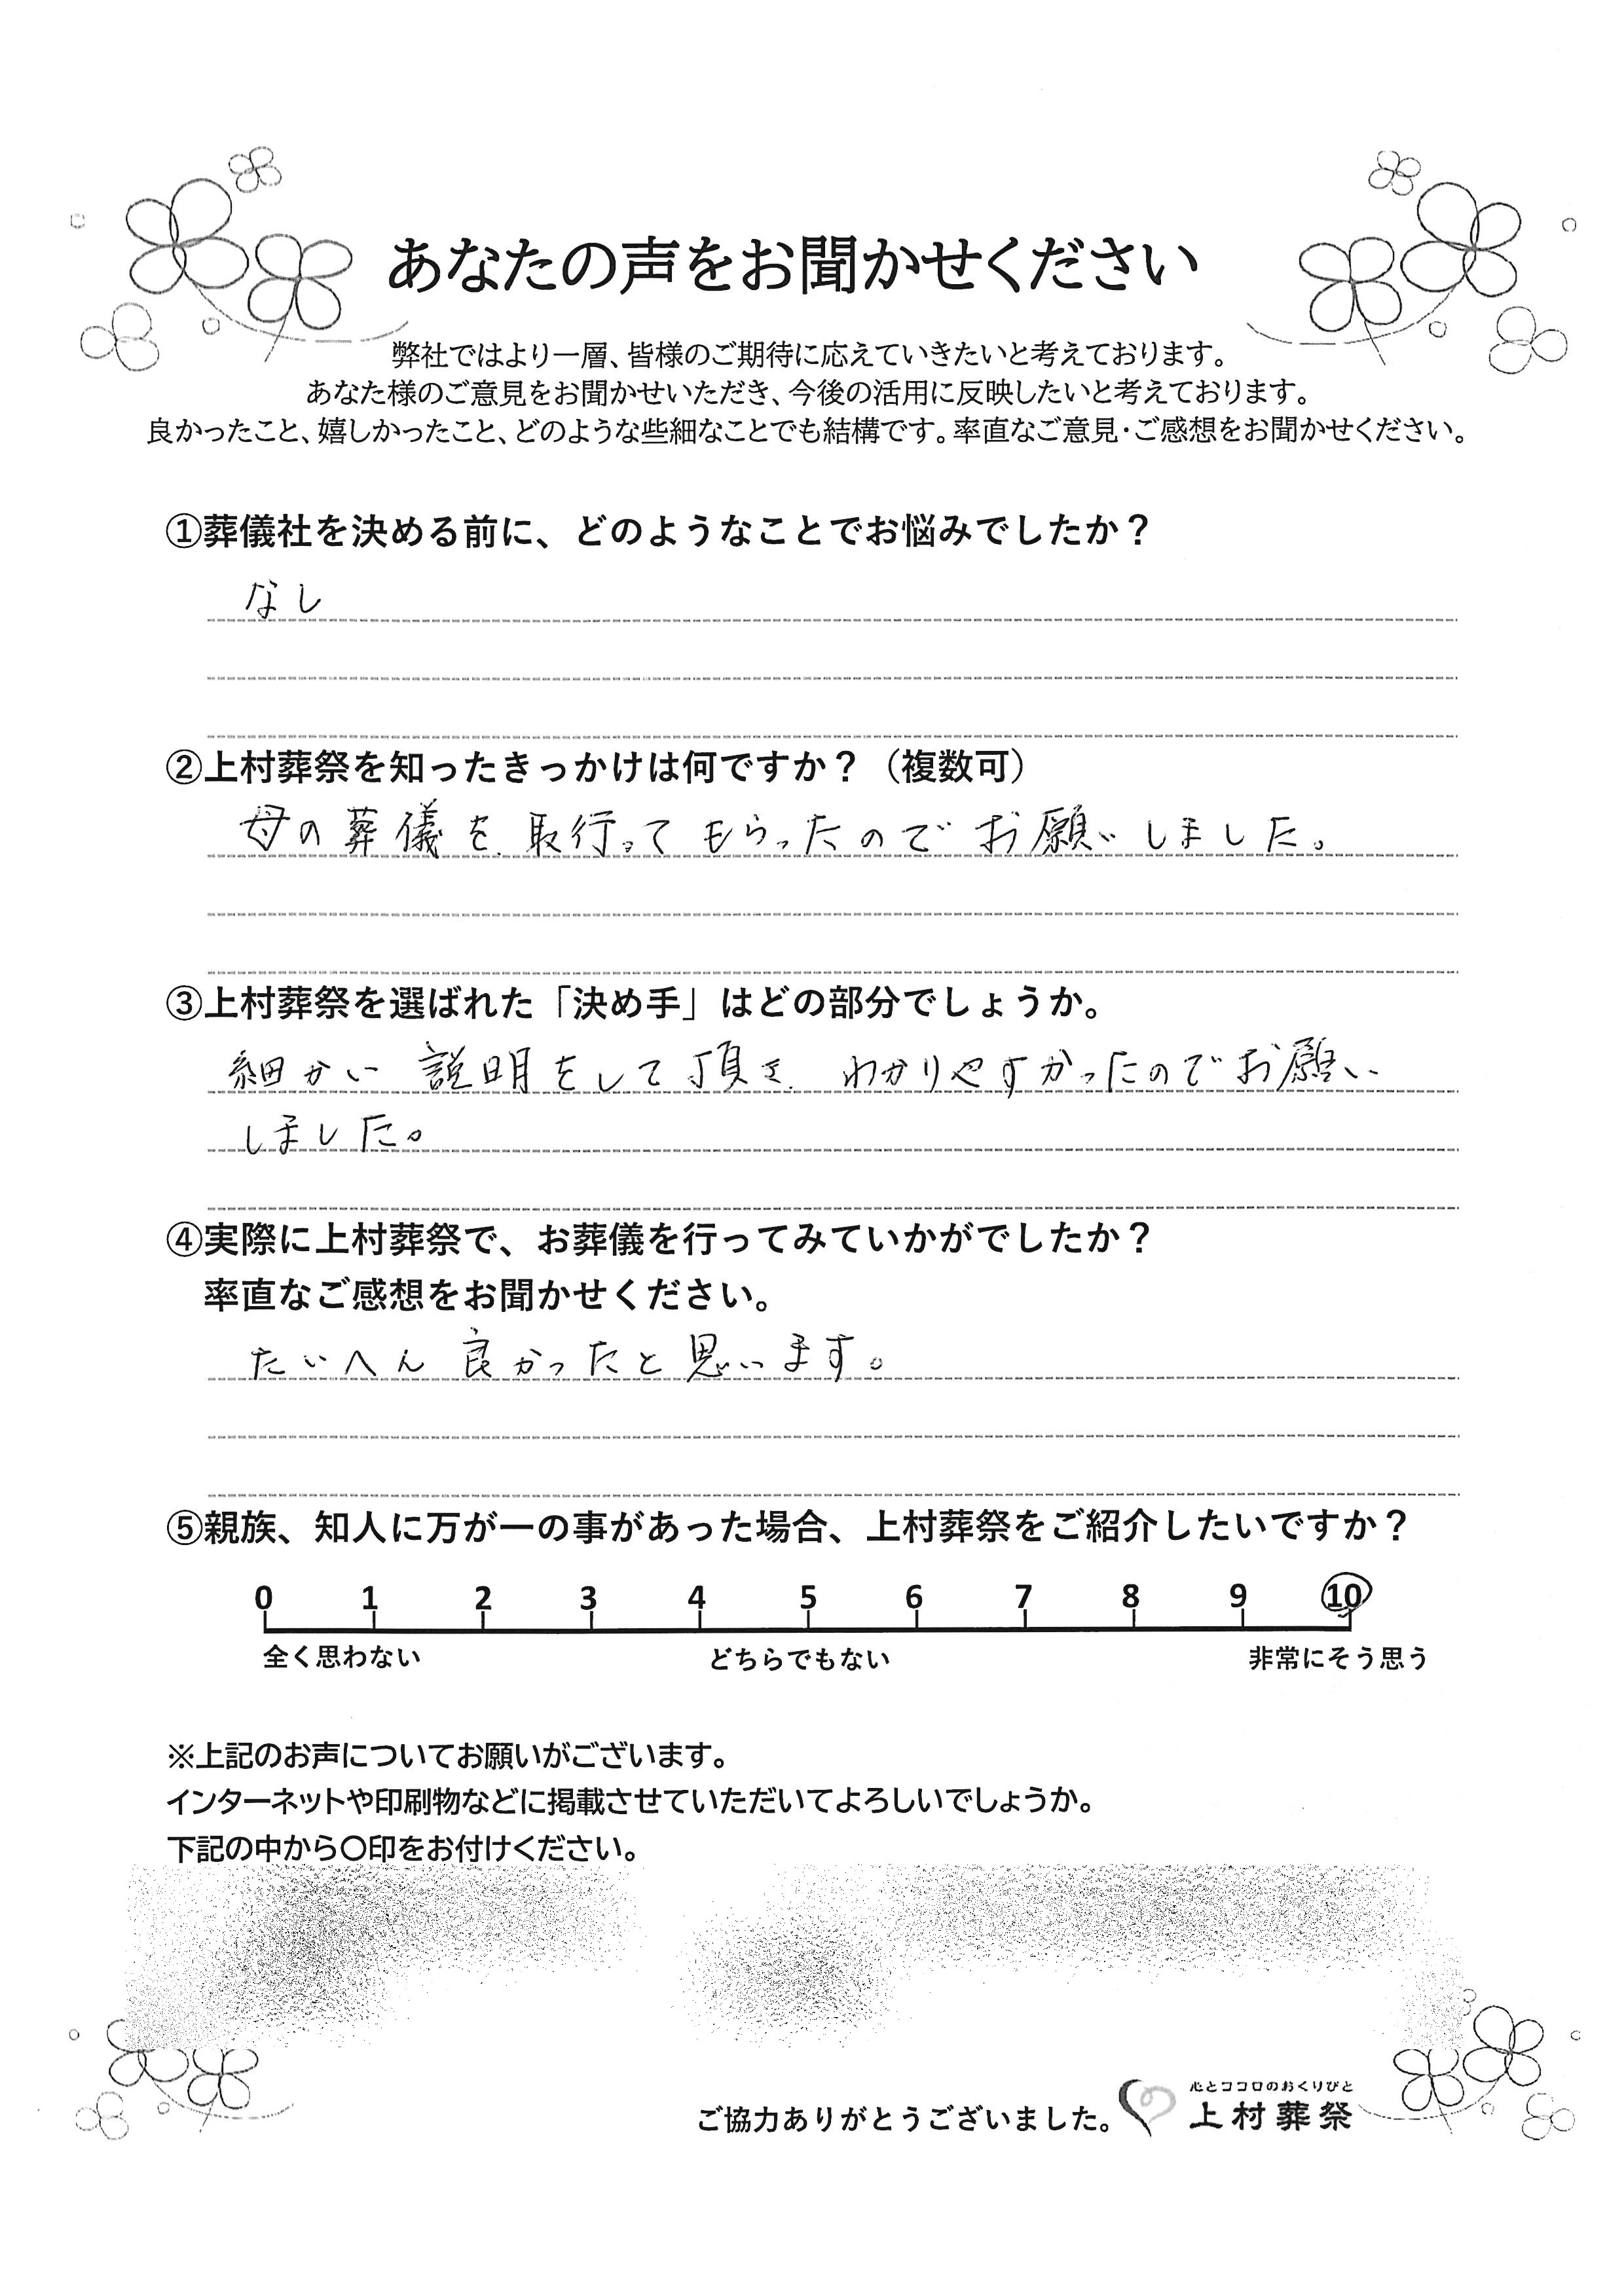 あなたの声をお聞かせください
弊社ではより一層、皆様のご期待に応えていきたいと考えております。
あなた様のご意見をお聞かせいただき、今後の活用に反映したいと考えております。
良かったこと、嬉しかったこと、どのような些細なことでも結構です。率直なご意見・ご感想をお聞かせください。
①葬儀社を決める前に、どのようなことでお悩みでしたか？
なし
②上村葬祭を知ったきっかけは何ですか？（複数可）
母の葬儀を取行ってもらったのでお願いしました。
③上村葬祭を選ばれた「決め手」はどの部分でしょうか。
細かい説明をして頂き わかりやすかったのでお願い
しました。
④実際に上村葬祭で、お葬儀を行ってみていかがでしたか？
率直なご感想をお聞かせください。
たいへん良かったと思います。
⑤親族、知人に万が一の事があった場合、上村葬祭をご紹介したいですか？
0 1 2 3 4 5 6 7 8 9 10
全く思わない どちらでもない 非常にそう思う
※上記のお声についてお願いがございます。
インターネットや印刷物などに掲載させていただいてよろしいでしょうか。
下記の中から〇印をお付けください。
心とココロのおくりびと
ご協力ありがとうございました。 上村葬祭